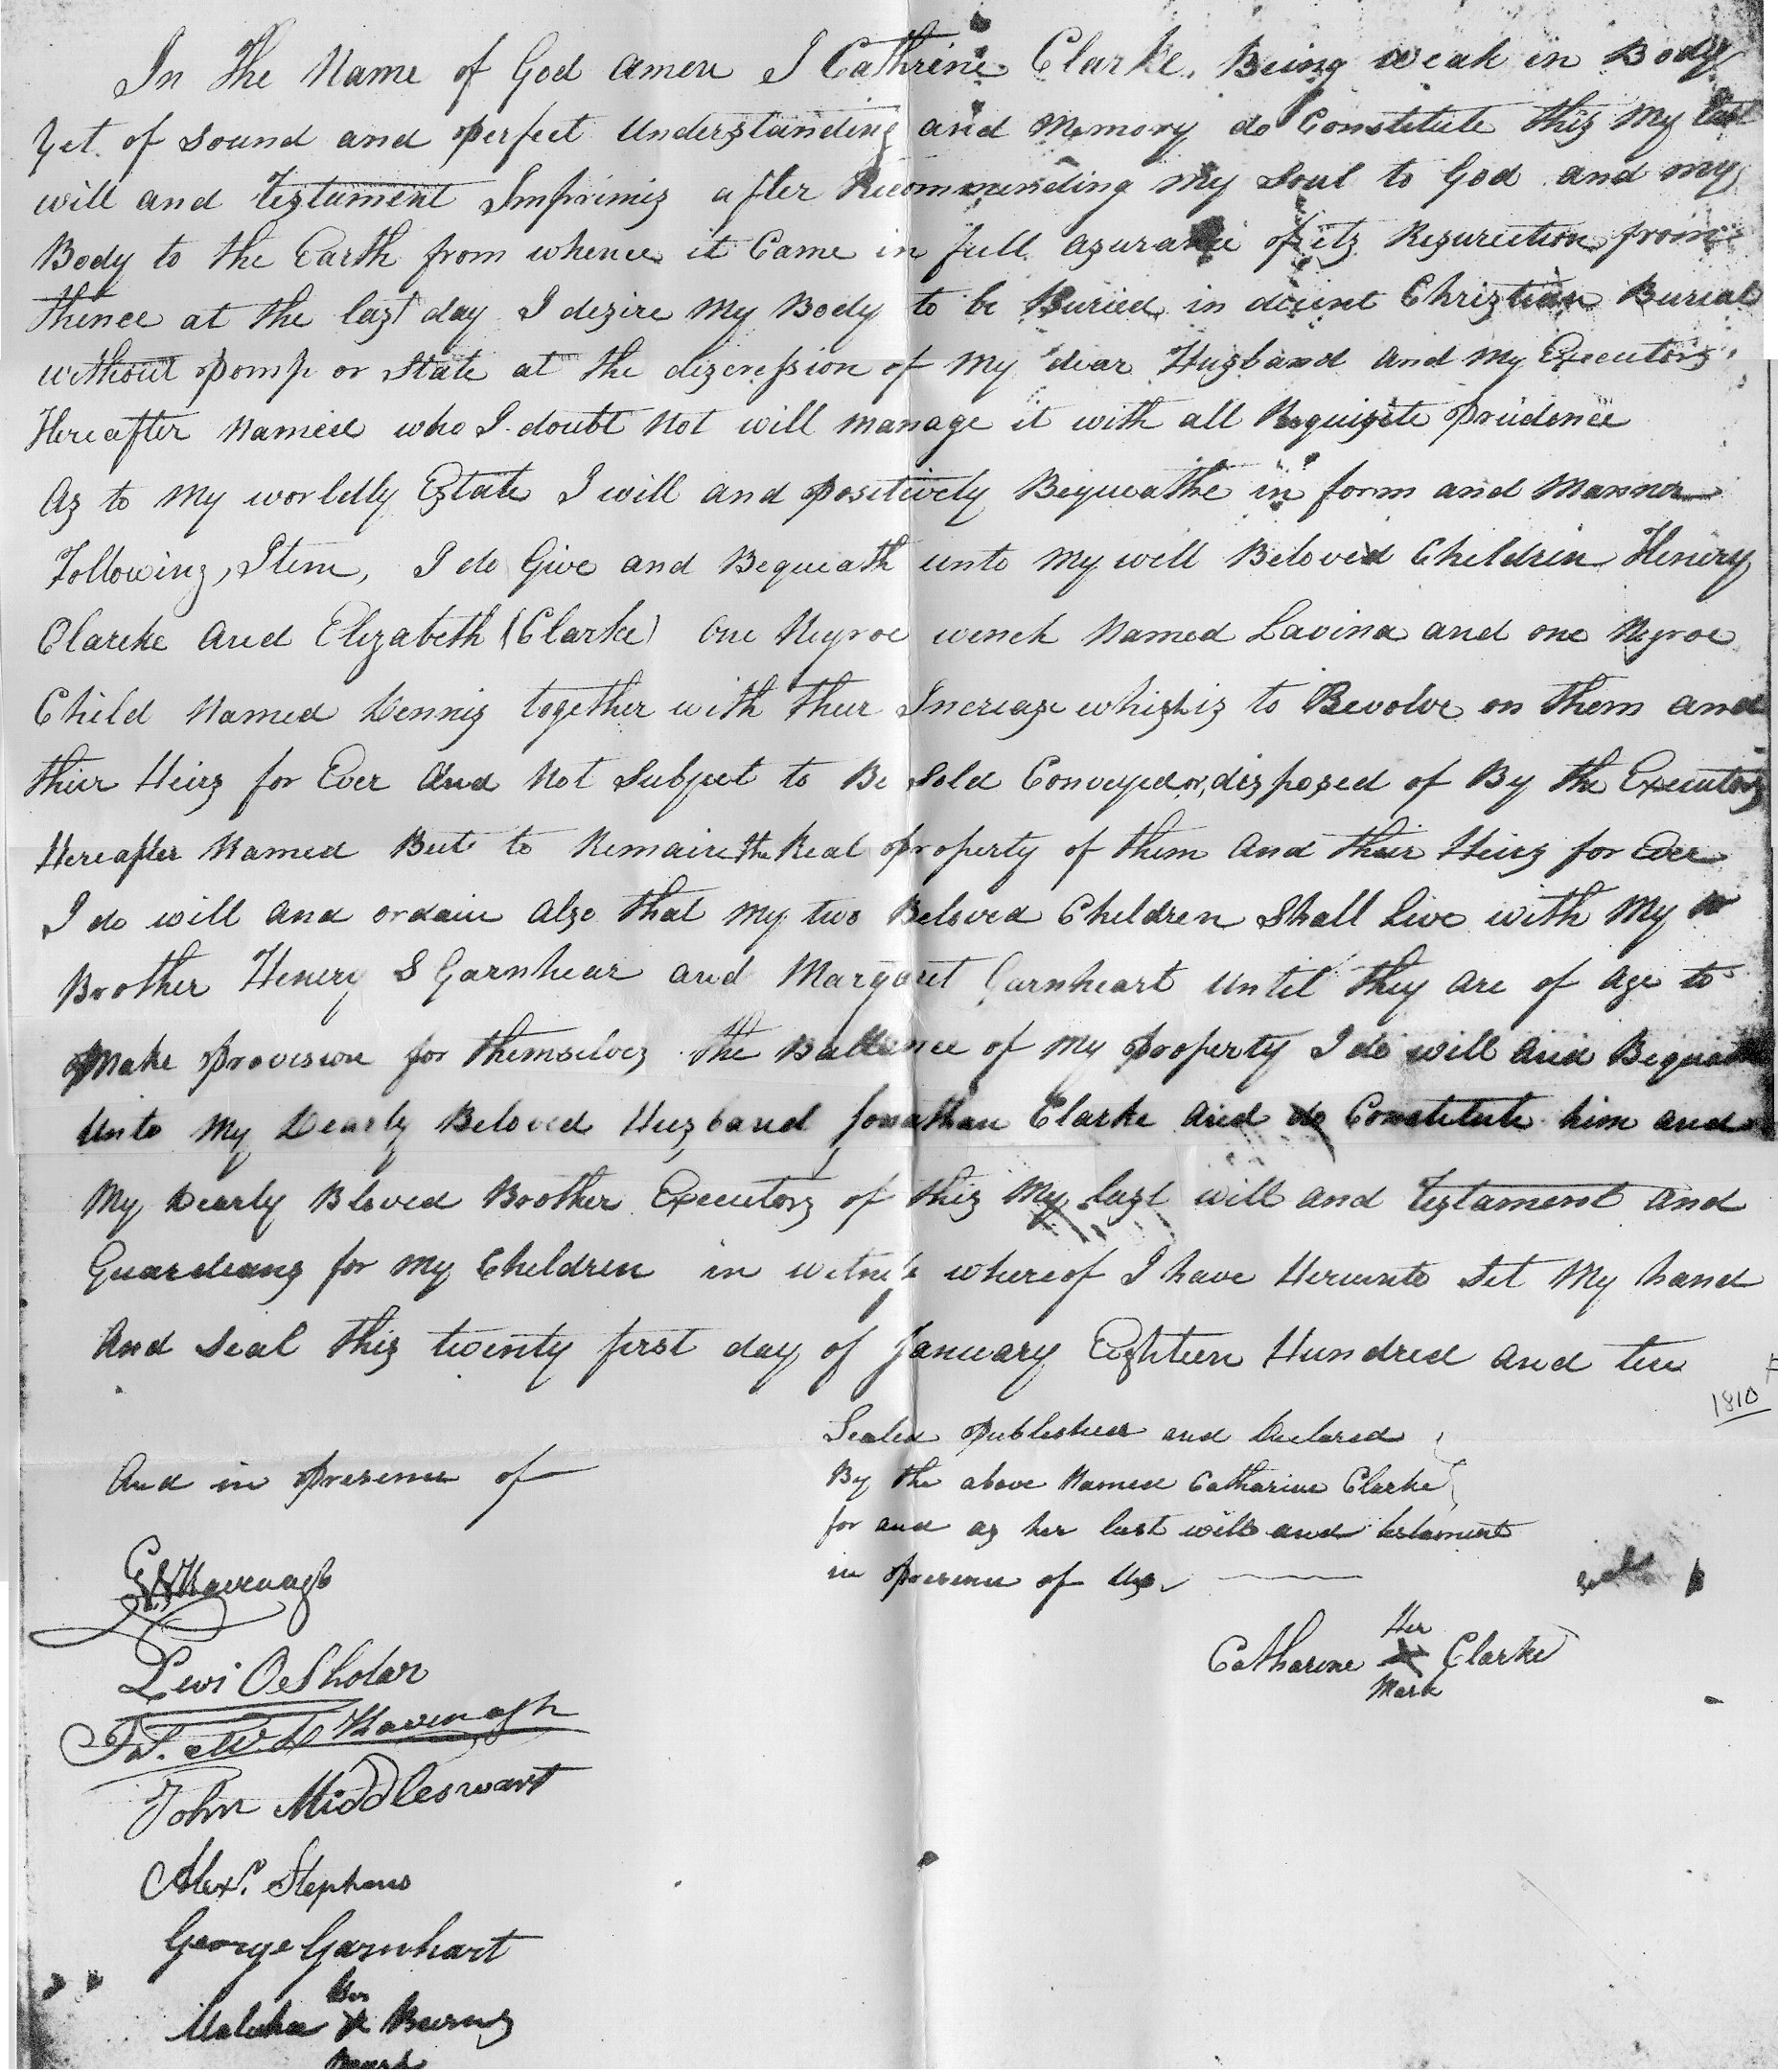 In the Name of God amen I Cathrine Clarke, Being weak in Body
Yet of sound and perfect Understanding and Memory do Constitute this My last
will and testament Imprimis after Recommending My Soul to God and my
Body to the Earth from whence it Came in full asurance of its Resurection from
thence at the last day I desire My Body to be Buried in decent Christian Burial
without pomp or State at the discression of My dear Husband and My Executors
Hereafter Named who I doubt Not will manage it with all Requisite prudence
As to My worldly Estate I will and positively Bequeathe in form and Manner
Following, Item, I do Give and Bequeath unto My well Beloved Children Henery
Clarcke and Elizabeth (Clarke) One Negroe wench Named Lavina and one Negroe
Child Named Dennis together with their Increase which is to Devolve on them and
their Heirs for Ever And Not Subject to Be Sold Conveyed or, disposed of By the Executors
Hereafter Named But to Remain the Real property of them And their Heirs for Ever
I do will and ordain also that My two Beloved Children Shall Live with My
Brother Henery S Garnhear and Margaret Garnheart Until they are of Age to
Make provision for themselves the Ballance of My property I do will and Bequeath
Unto My Dearly Beloved Husband Jonathan Clarke and do Constitute him and
My Dearly Bloved Brother Executors of this My last will and testament and
Guardians for My Children in witness whereof I have Hereunto Set My hand
And Seal this twenty first day of January Eighteen Hundred and ten
1810
Sealed published and Declared
By the above Named Catharine Clarke
for and as her last will and testament
in presence of Us
And in presence of
Her
Catharine X Clarke
Mark
Kavenagh
Levi
Kavenagh
John Middleswart
Alexr. Stephens
George Garnhart
His
X Burns
Mark